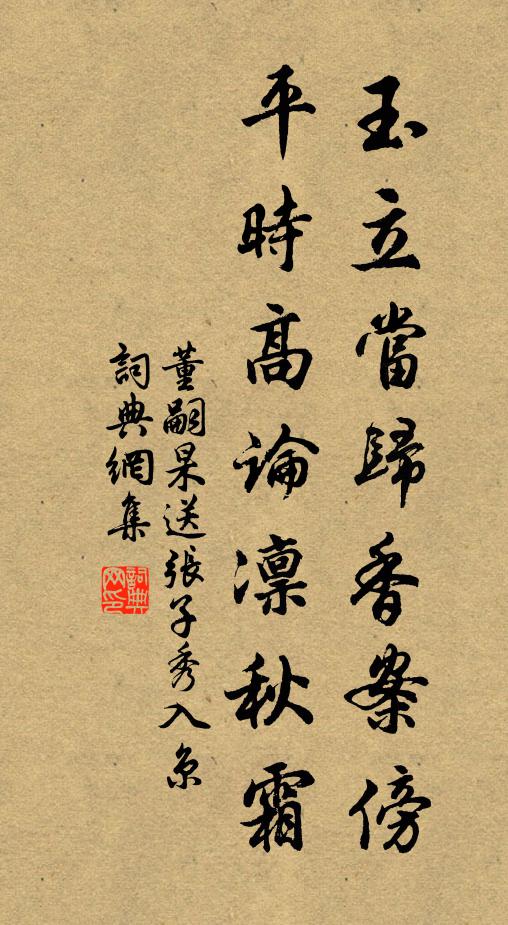 玉立當歸香案傍
平時高論凜秋霜
董嗣杲送張子秀入京
詞典網集
詞典網印